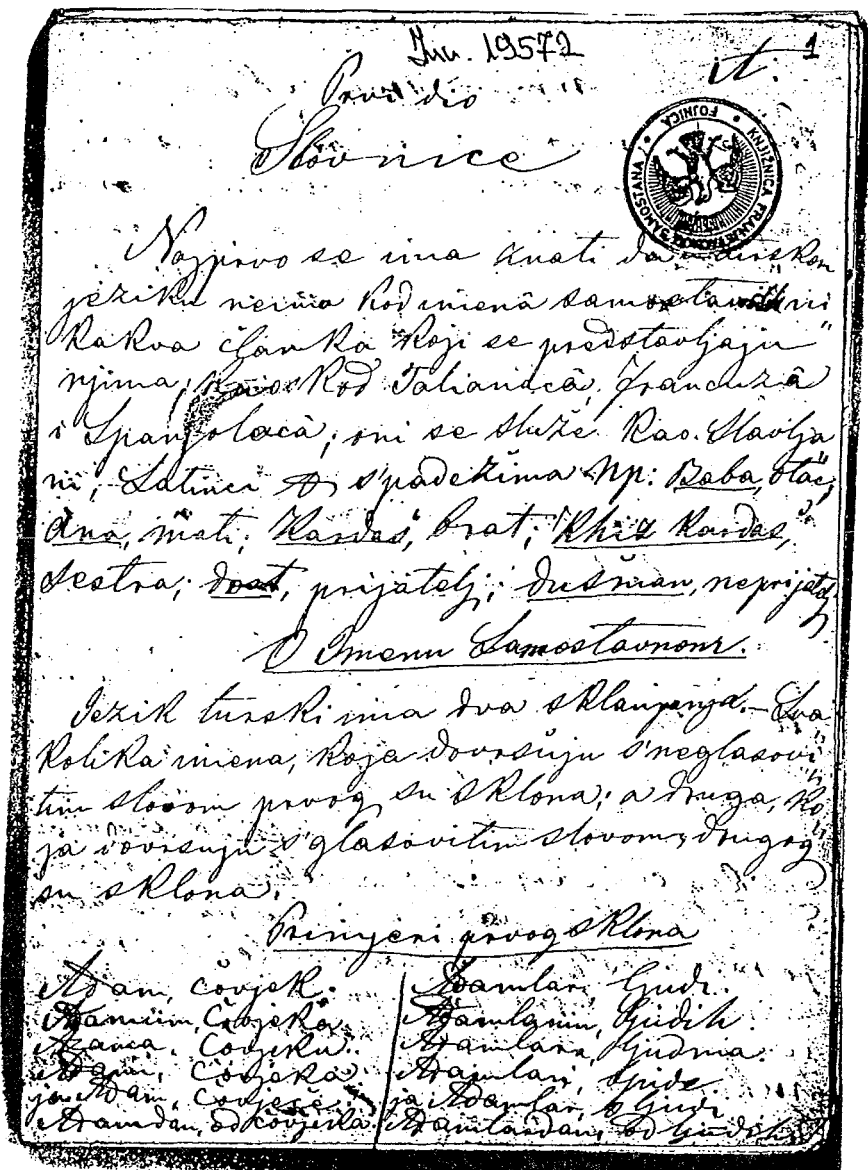 Inv. 19572
1
Prvi dio
Slovnice
KNJIŽNICA FRANJEVAČKOG SAMOSTANA • FOJNICA •
Najprvo se ima znati da u turskom
jeziku neima kod imena samostavnih ni
kakva članka koji se predstavljaju
njima, kao kod Talianacâ, Francuzâ
i Španjolacâ; oni se služe kao Slavlja
ni, Latinci s'padežima np: Baba, otac,
Ana, mati; Kardaš, brat; Khiz Kardaš,
sestra; dost, prijatelj; dušman, neprijatelj
O Imenu Samostavnom.
Jezik turski ima dva sklanjanja. – Sva
kolika imena, koja dovršuju s'neglasovi
tim slovom prvog su sklona; a druga, ko
ja dovršuju s'glasovitim slovom, drugog
su sklona.
Primjeri prvog sklona
Adam, čovjek. Adamlar, ljudi.
Adamum, čovjeka Adamlarun, ljudih.
Adama, čovjeku. Adamlara, ljudma.
Adami, čovjeka Adamlari, ljude
ja Adam, čovječe ja Adamlar, o ljudi
Adamdan, od čovjeka Adamlardan, od ljudih